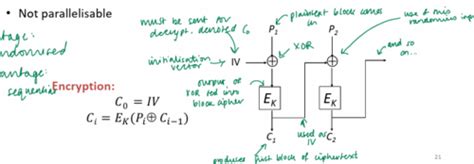 • Not parallelisable
must be sent for
decrypt. denoted C₀
plaintext block comes
in
use of this
randomises
tage:
randomised
antage:
sequential
initialisation
vector
IV
P₁
P₂
XOR
and so
on...
Encryption:
output of
XOR fed into
block cipher
E_K
E_K
C₀ = IV
C_i = E_K(P_i ⊕ C_{i−1})
used as
IV
C₁
C₂
produces first block of ciphertext
21